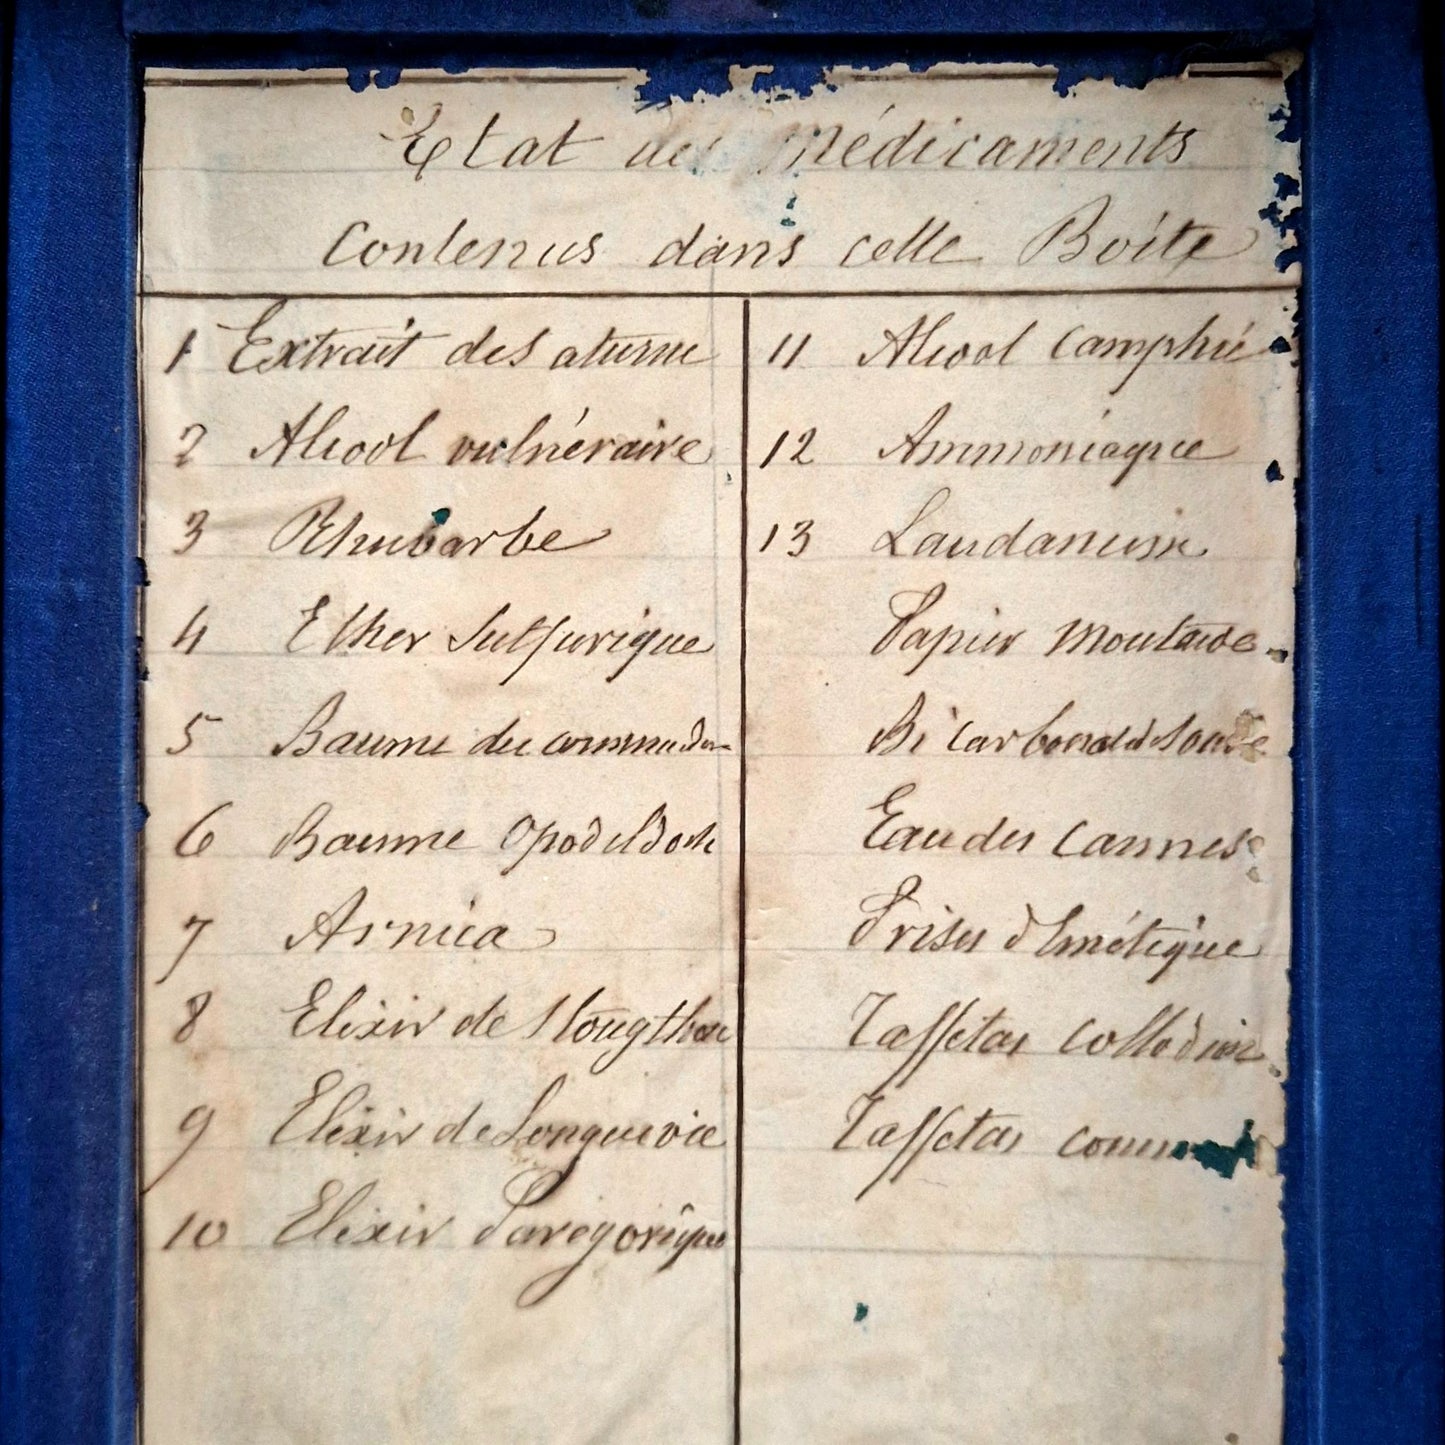 Etat des Médicaments
Contenus dans cette Boîte
1 Extrait de Saturne
2 Alcool vulnéraire
3 Rhubarbe
4 Ether Sulfurique
5 Baume du
6 Baume Opodeldoch
7 Arnica
8 Elixir de
9 Elixir de Longue vie
10 Elixir Parégorique
11 Alcool Camphré
12 Ammoniaque
13 Laudanum
Papier Moutarde
Bi Carbonate de Soude
Eau des Carmes
Prises d'Emétique
Taffetas Collodion
Taffetas